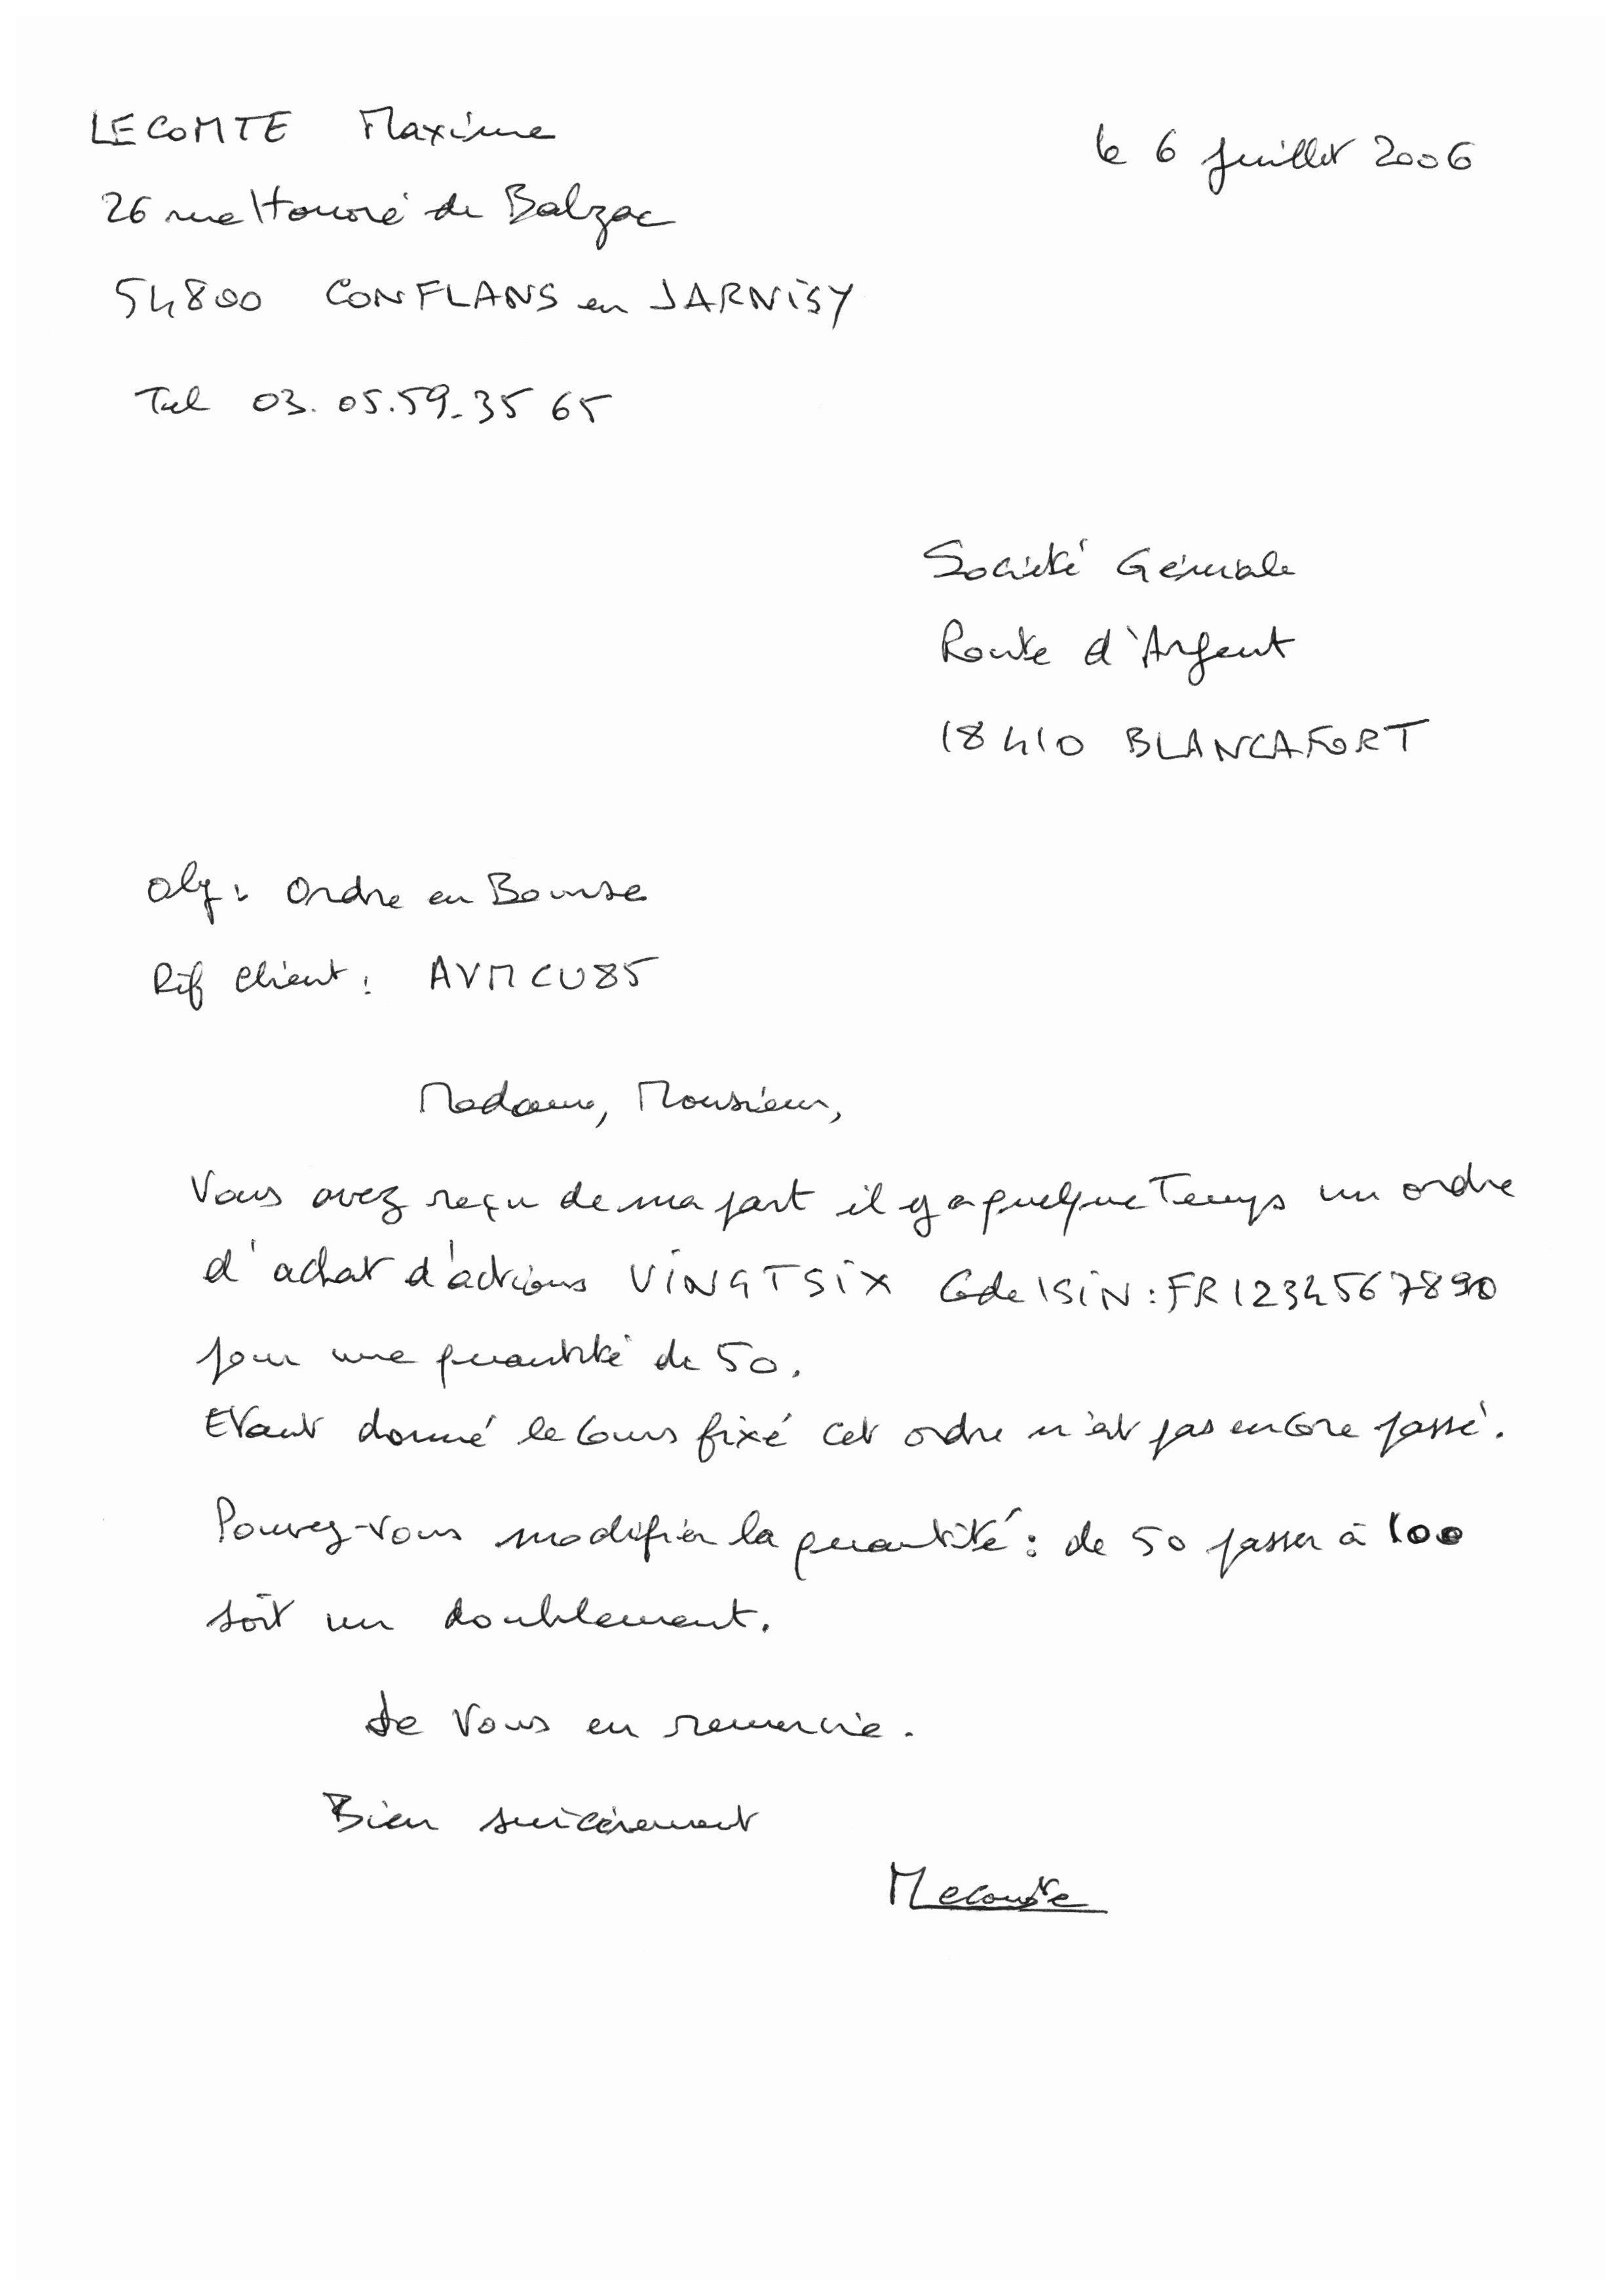 LECOMTE Maxime
le 6 juillet 2006
26 rue Honoré de Balzac
54800 CONFLANS en JARNISY
Tel 03.05.59.35 65
Société Générale
Route d'Argent
18410 BLANCAFORT
Obj : Ordre en Bourse
Réf Client : AVMCU85
Madame, Monsieur,
Vous avez reçu de ma part il y a quelque temps un ordre
d'achat d'actions VINGTSIX Code ISIN : FR1234567890
pour une quantité de 50.
Etant donné le cours fixé cet ordre n'est pas encore passé.
Pouvez-vous modifier la quantité : de 50 passer à 100
soit un doublement.
Je vous en remercie.
Bien sincèrement
MLecomte